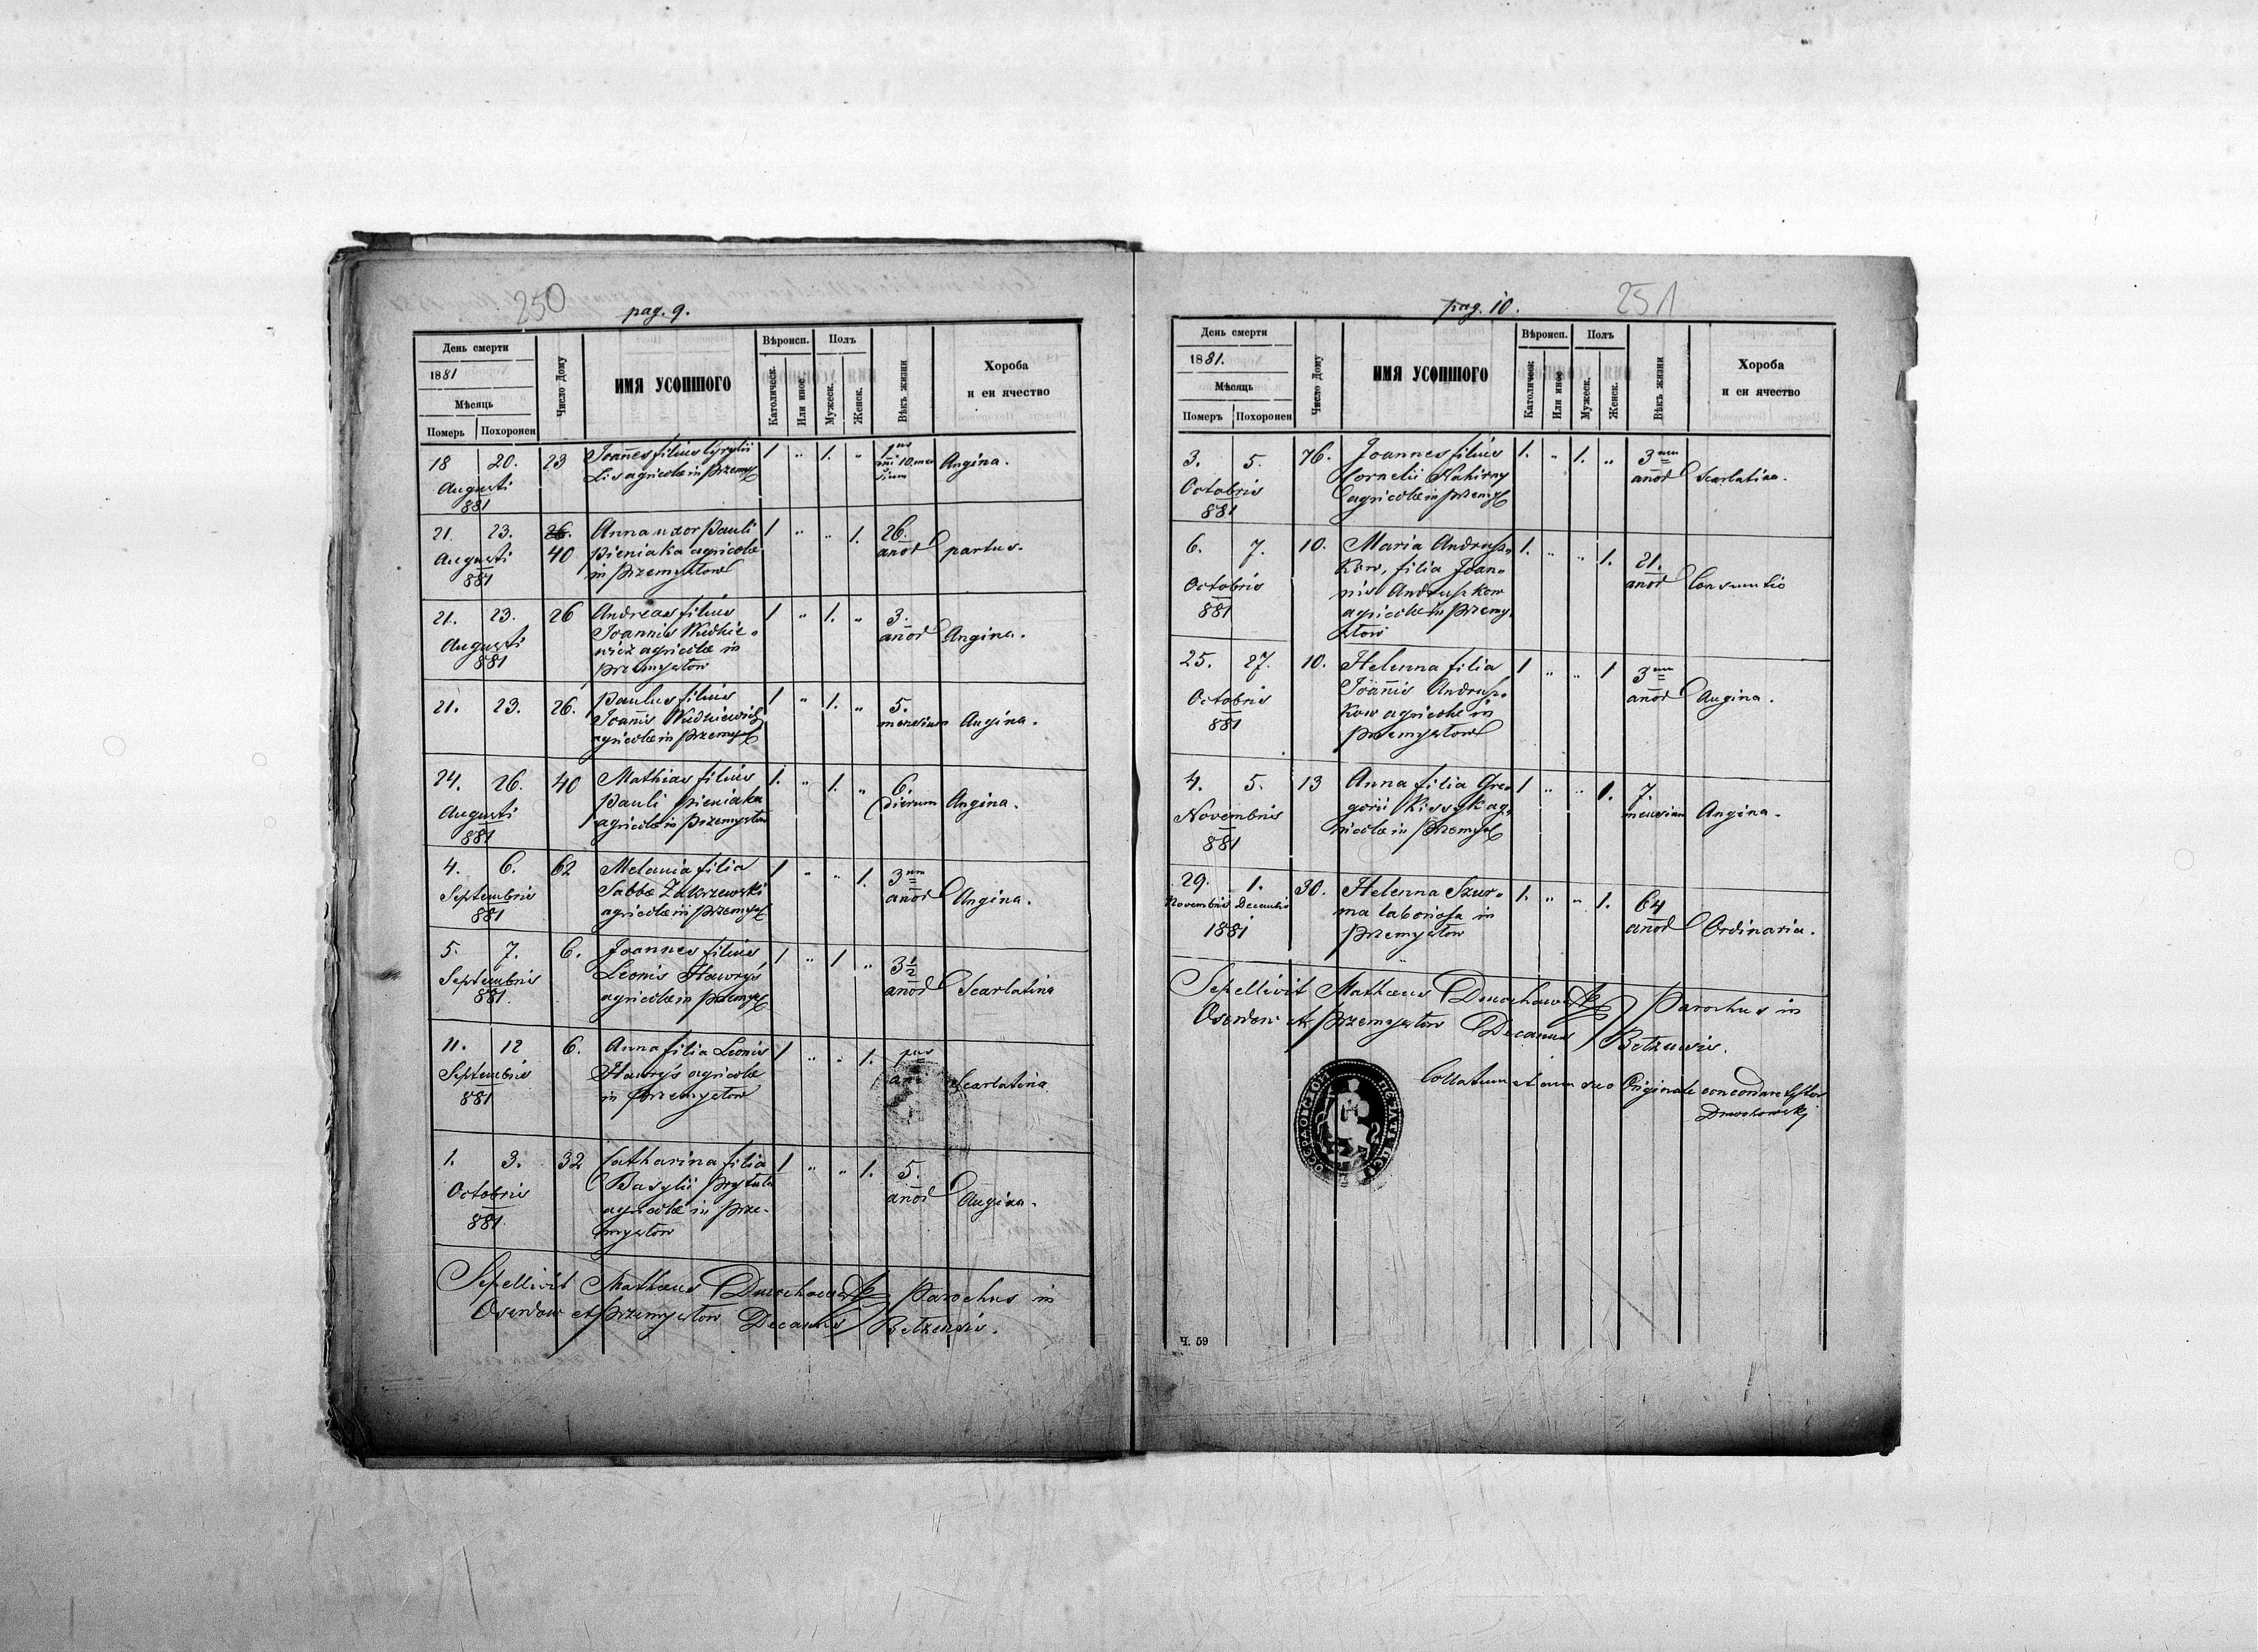 250
pag. 9.
День смерти
1881
Мѣсяць
Померь Похоронен
Число Дому
ИМЯ УСОПШОГО
Вѣроисп.
Католическ.
Или иное
Полъ
Мужеск.
Женск.
Вѣкъ жизни
Хороба
и еи ячество
18 20. 23 Joanes filius Cyrylii 1 " 1. "
Augusti Lis agricolae in Przemys Angina.
881
21. 23. 26. Anna uxor Pauli 1 " " 1. 26.
Augusti 40 Pieniaka agricolae anor partus.
881 in Przemysłow
21. 23. 26 Andreas filius 1 " 1. " 3.
Augusti Joannis Wudkie- anor Angina.
881 wicz agricolae in
Przemysłow
21. 23. 26. Paulus filius 1 " 1. " 5.
Joanis Wudkiewicz mensium Angina.
agricolae in Przemys
24. 26. 40 Mathias filius 1. " 1. " 6.
Augusti Pauli Pieniaka dierum Angina.
881 agricolae in Przemysłow
4. 6. 62 Melania filia 1 " " 1. 3
Septembris Sabbae Zakrzewski anor Angina.
881 agricolae in Przemys
5. 7. 6. Joannes filius 1 " 1 " 3½
Septembris Leonis Hawryś anor Scarlatina
881. agricolae in Przemys
11. 12 6. Anna filia Leonis 1 " " 1.
Septembris Hawryś agricolae Scarlatina
881 in Przemysłow
1. 3. 32 Catharina filia 1 " " 1. 5.
Octobris Basylii Prytula anor Angina.
881. agricolae in Prze-
mysłow
Sepellivit Mathaeus Dmochowski Parochus in
Oserdow et Przemysłow Decanus Bełzensis.
251
pag. 10.
День смерти
1881.
Мѣсяць
Померъ Похоронен
Число Дому
ИМЯ УСОПШОГО
Вѣроисп.
Католическ
Или иное
Полъ
Мужеск.
Женск.
Вѣкъ жизни
Хороба
и еи ячество
3. 5. 76. Joannes filius 1. " 1. " 3
Octobris Cornelii Nahirny anor Scarlatina.
881 agricolae in Przemys
6. 7. 10. Maria Andrusz- 1. " " 1. 21.
Octobris kow, filia Joan- anor Consumtio
881 nis Andruszkow
agricolae in Przemy-
słow
25. 27. 10. Helenna filia 1 " " 1 3
Octobris Joanis Andrusz- anor Angina.
881 kow agricolae in
Przemysłow
4. 5. 13 Anna filia Gre- 1 " " 1. 7.
Novembris gorii Kissyk ag- mensium Angina.
881 ricolae in Przemys
29. 1. 30. Helenna Szur- 1. " " 1. 64
Novembris Decembris ma laboriosa in anor Ordinaria.
1881 Przemysłow
Sepellivit Mathaeus Dmochowski Parochus in
Oserdow et Przemysłow Decanus Bełzensis.
Collatum et cum suo Originale concordare testor
Dmochowski
Ч. 59